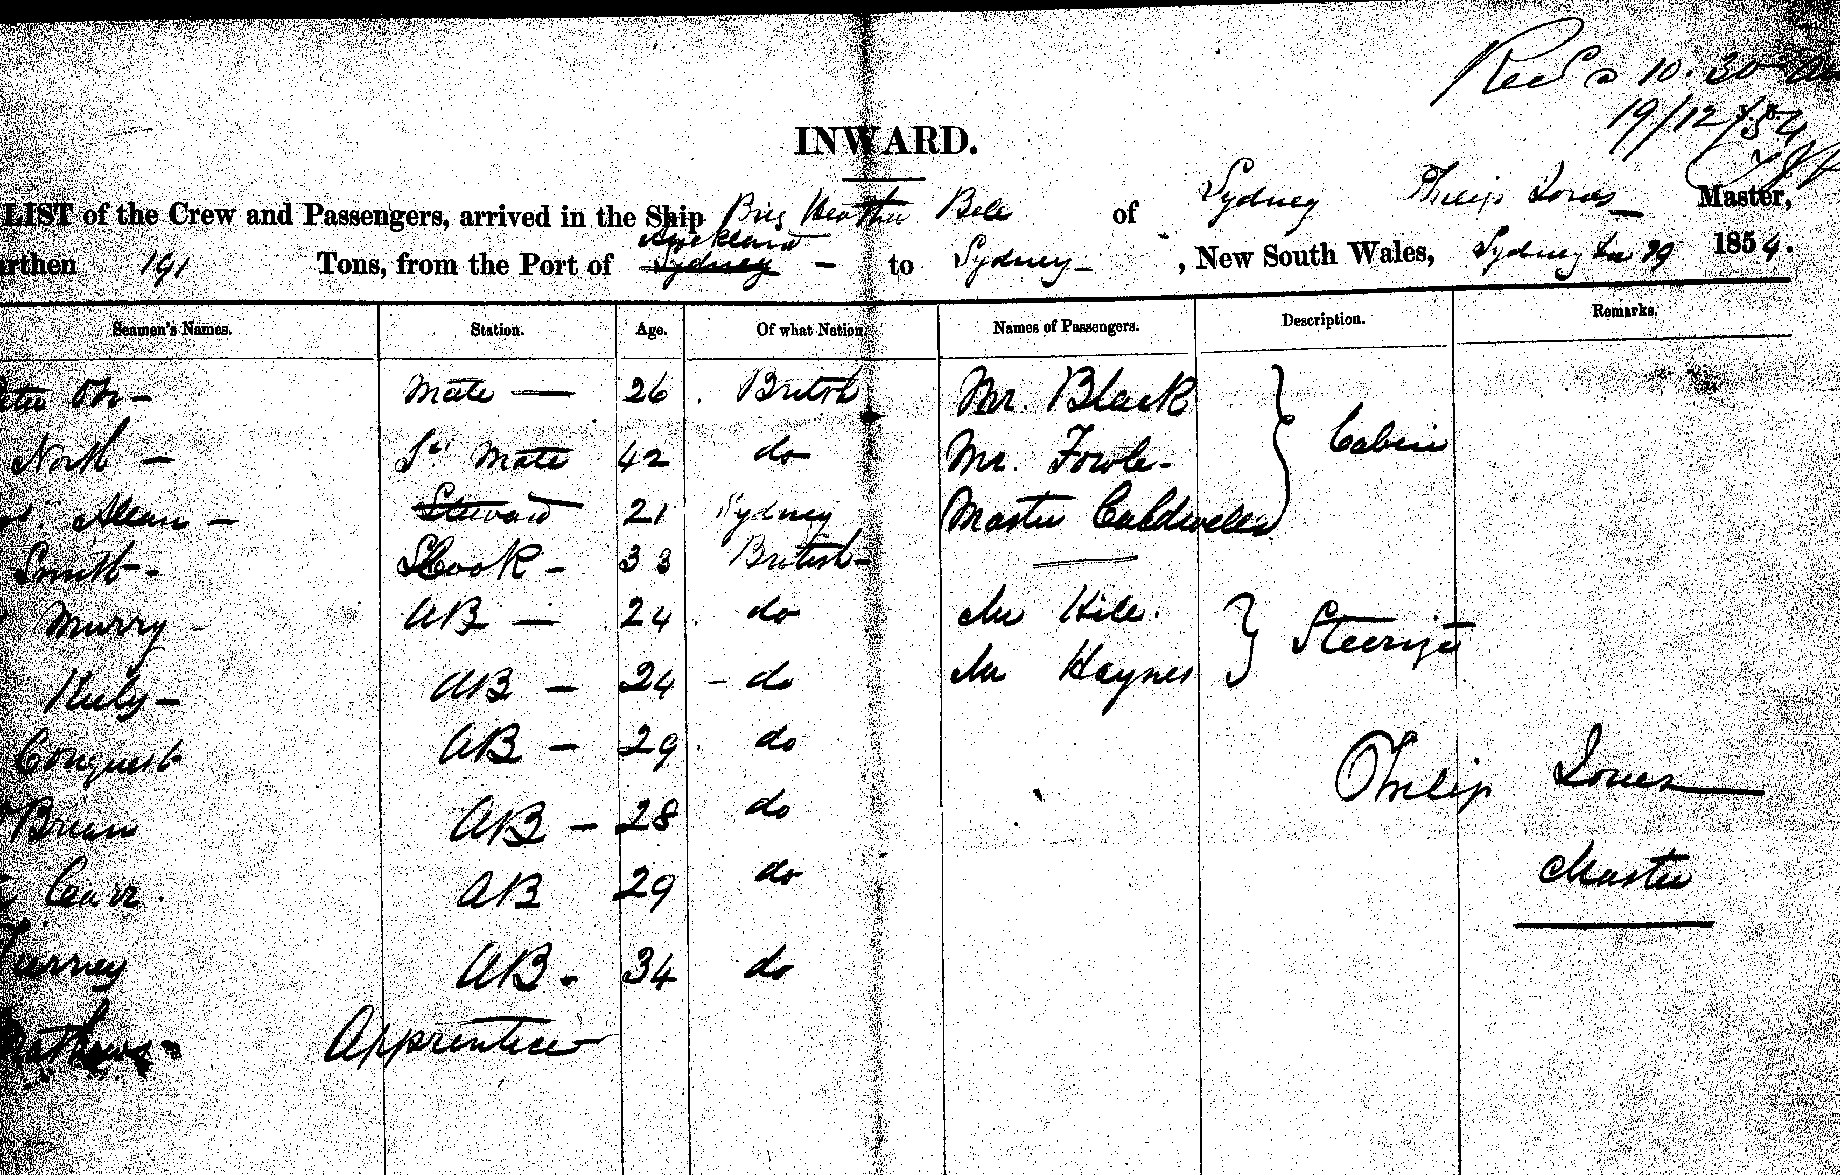 Recd @ 10.30 am
19/12/54
INWARD.
LIST of the Crew and Passengers, arrived in the Ship Brig Heather Bell of Sydney Philip Jones Master,
Auckland
urthen 191 Tons, from the Port of Sydney – to Sydney – , New South Wales, Sydney 19 1854.
Seamen's Names. Station. Age. Of what Nation. Names of Passengers. Description. Remarks.
Mate — 26 British Mr. Black
Cabin
North – Sd Mate 42 do Mr. Fowle –
Allan – Steward 21 Sydney Master Caldwell
Smith – Cook – 33 British –
Murry – AB — 24 do Mr Hill.
Steerige
AB – 24 – do Mr Haynes
Conquest AB – 29 do
Philip Jones
Brian AB – 28 do
Carr. AB 29 do
Master
Tierney AB – 34 do
Mathews – Apprentice